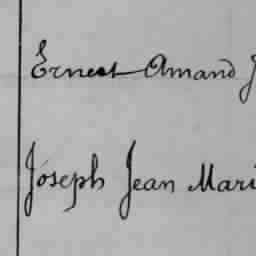 Ernest Amand J
Joseph Jean Mari